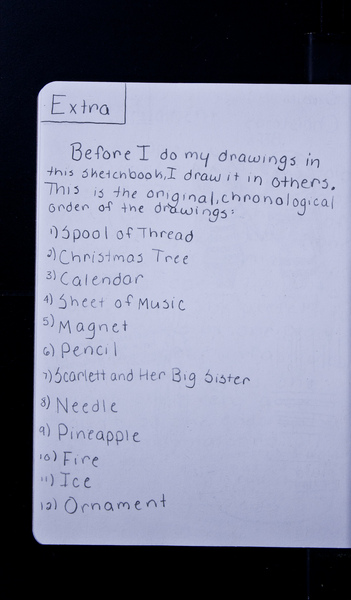 Extra
Before I do my drawings in
this sketchbook, I draw it in others.
This is the original, chronological
order of the drawings:
1) Spool of Thread
2) Christmas Tree
3) Calendar
4) Sheet of Music
5) Magnet
6) Pencil
7) Scarlett and Her Big Sister
8) Needle
9) Pineapple
10) Fire
11) Ice
12) Ornament